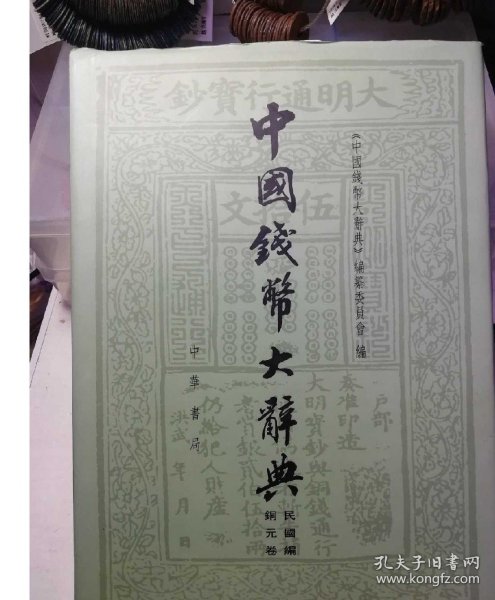 大明通行寶鈔
中國錢幣大辭典
《中國錢幣大辭典》編纂委員會 編
伍拾文
中華書局
民國編
銅元卷
戶部
奏准印造
大明寶鈔與銅錢通行
仍給犯人財產
洪武 年 月 日
孔夫子旧书网
www.kongfz.com